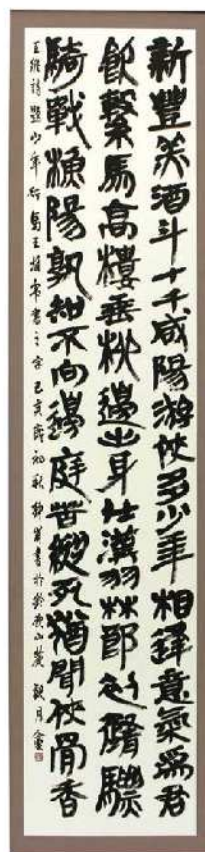 新豐美酒斗十千咸陽游俠多少年相逢意氣為君
飲繫馬高樓垂柳邊出身仕漢羽林郎初隨驃
騎戰漁陽孰知不向邊庭苦縱死猶聞俠骨香
王維詩 少年行 書之 己亥 初秋 書於 山麓